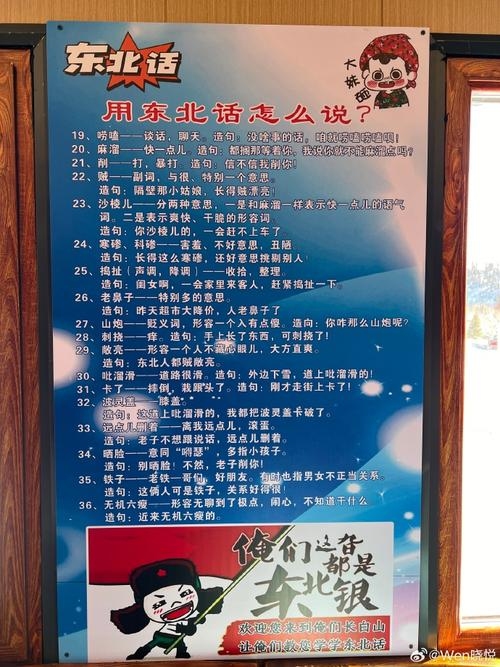 东北话
大辣椒
用东北话怎么说？
19、唠嗑——谈话，聊天。造句：没啥事的话，咱就唠唠嗑呗！
20、麻溜——快一点儿。造句：都搁那等着你，我说你就不能麻溜点吗？
21、削——打，暴打。造句：信不信我削你！
22、贼——副词，与很、特别一个意思。
造句：隔壁那小姑娘，长得贼漂亮！
23、沙楞儿——分两种意思，一是和麻溜一样表示快一点儿的语气
词。二是表示爽快、干脆的形容词。
造句：你沙楞儿的，一会赶不上车了。
24、寒碜、科碜——害羞、不好意思，丑陋。
造句：长得这么寒碜，还好意思挑剔别人！
25、捣扯（声调，降调）——收拾，整理。
造句：闺女啊，一会家里来客人，赶紧捣扯一下。
26、老鼻子——特别多的意思。
造句：昨天超市大降价，人老鼻子了
27、山炮——贬义词，形容一个人有点傻。造句：你咋那么山炮呢？
28、刺挠——痒。造句：手上长了东西，可刺挠了！
29、敞亮——形容一个人不藏心眼儿，大方直爽。
造句：东北人都贼敞亮。
30、呲溜滑——道路很滑。造句：外边下雪，道上呲溜滑的！
31、卡了——摔倒，栽跟头了。造句：刚才走街上卡了！
32、波灵盖——膝盖。
造句：这道上呲溜滑的，我都把波灵盖卡破了。
33、远点儿删着——离我远点儿，滚蛋。
造句：老子不想跟说话，远点儿删着。
34、晒脸——意同“嘚瑟”，多指小孩子。
造句：别晒脸！不然，老子削你！
35、铁子——老铁—哥们，好朋友。有时也指男女不正当关系。
造句：这俩人可是铁子，关系好得很！
36、无机六瘦——形容无聊到了极点，闹心，不知道干什么
造句：近来无机六瘦的。
俺们这旮
都是
东北银
欢迎您来到俺们长白山
让俺们教您学学东北话
@Wen晓悦